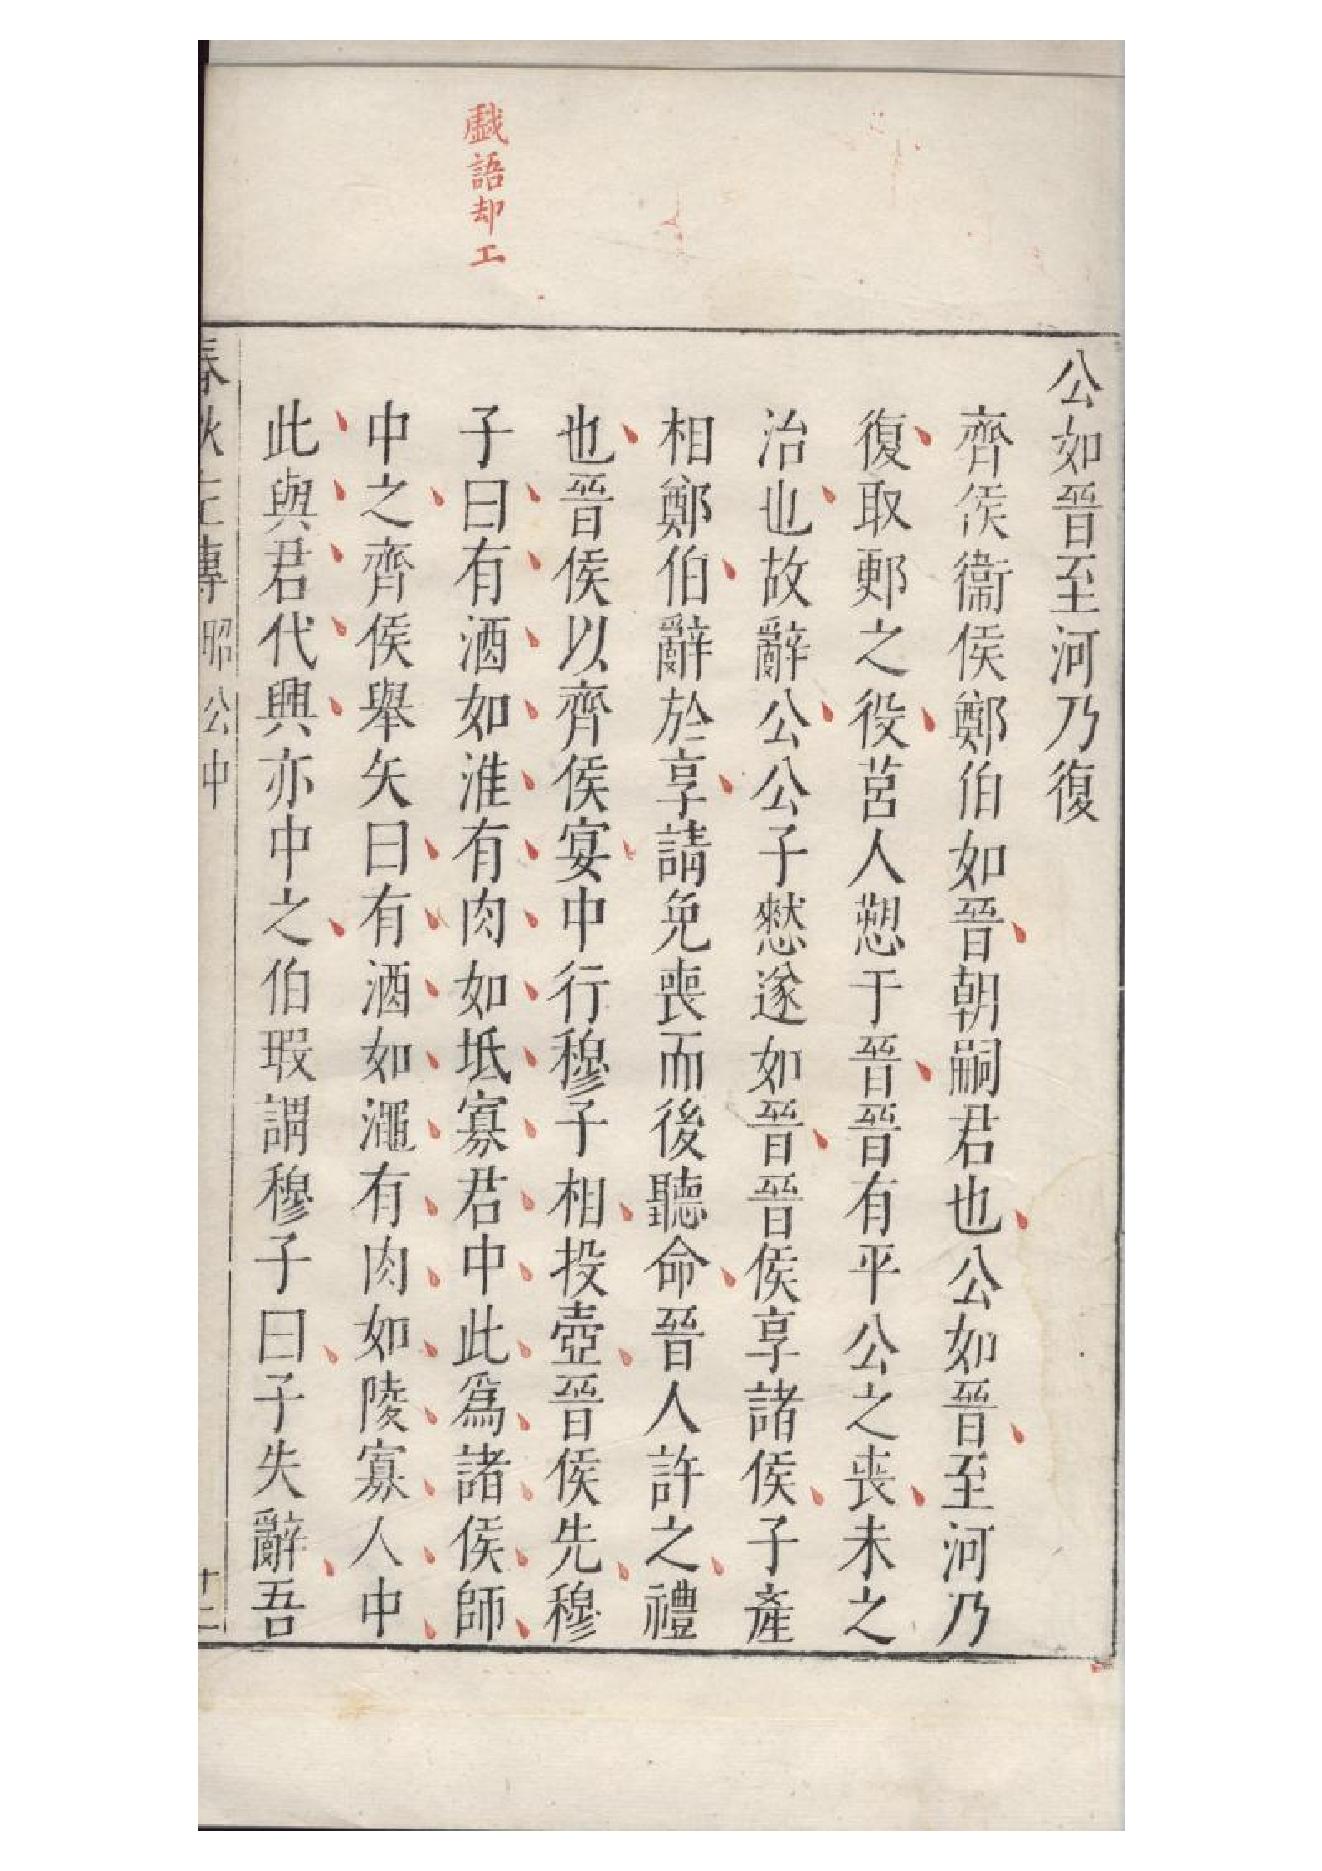 戯語却工
公如晉至河乃復
齊侯衞侯鄭伯如晉朝嗣君也公如晉至河乃
復取郠之役莒人愬于晉晉有平公之喪未之
治也故辭公公子憖遂如晉晉侯享諸侯子產
相鄭伯辭於享請免喪而後聽命晉人許之禮
也晉侯以齊侯宴中行穆子相投壺晉侯先穆
子曰有酒如淮有肉如坻寡君中此爲諸侯師
中之齊侯舉矢曰有酒如澠有肉如陵寡人中
此與君代興亦中之伯瑕謂穆子曰子失辭吾
春秋左傳 昭公中 十二